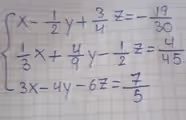 x - 1/2 y + 3/4 z = - 19/30
1/3 x + 4/9 y - 1/2 z = 4/45
3x - 4y - 6z = 7/5